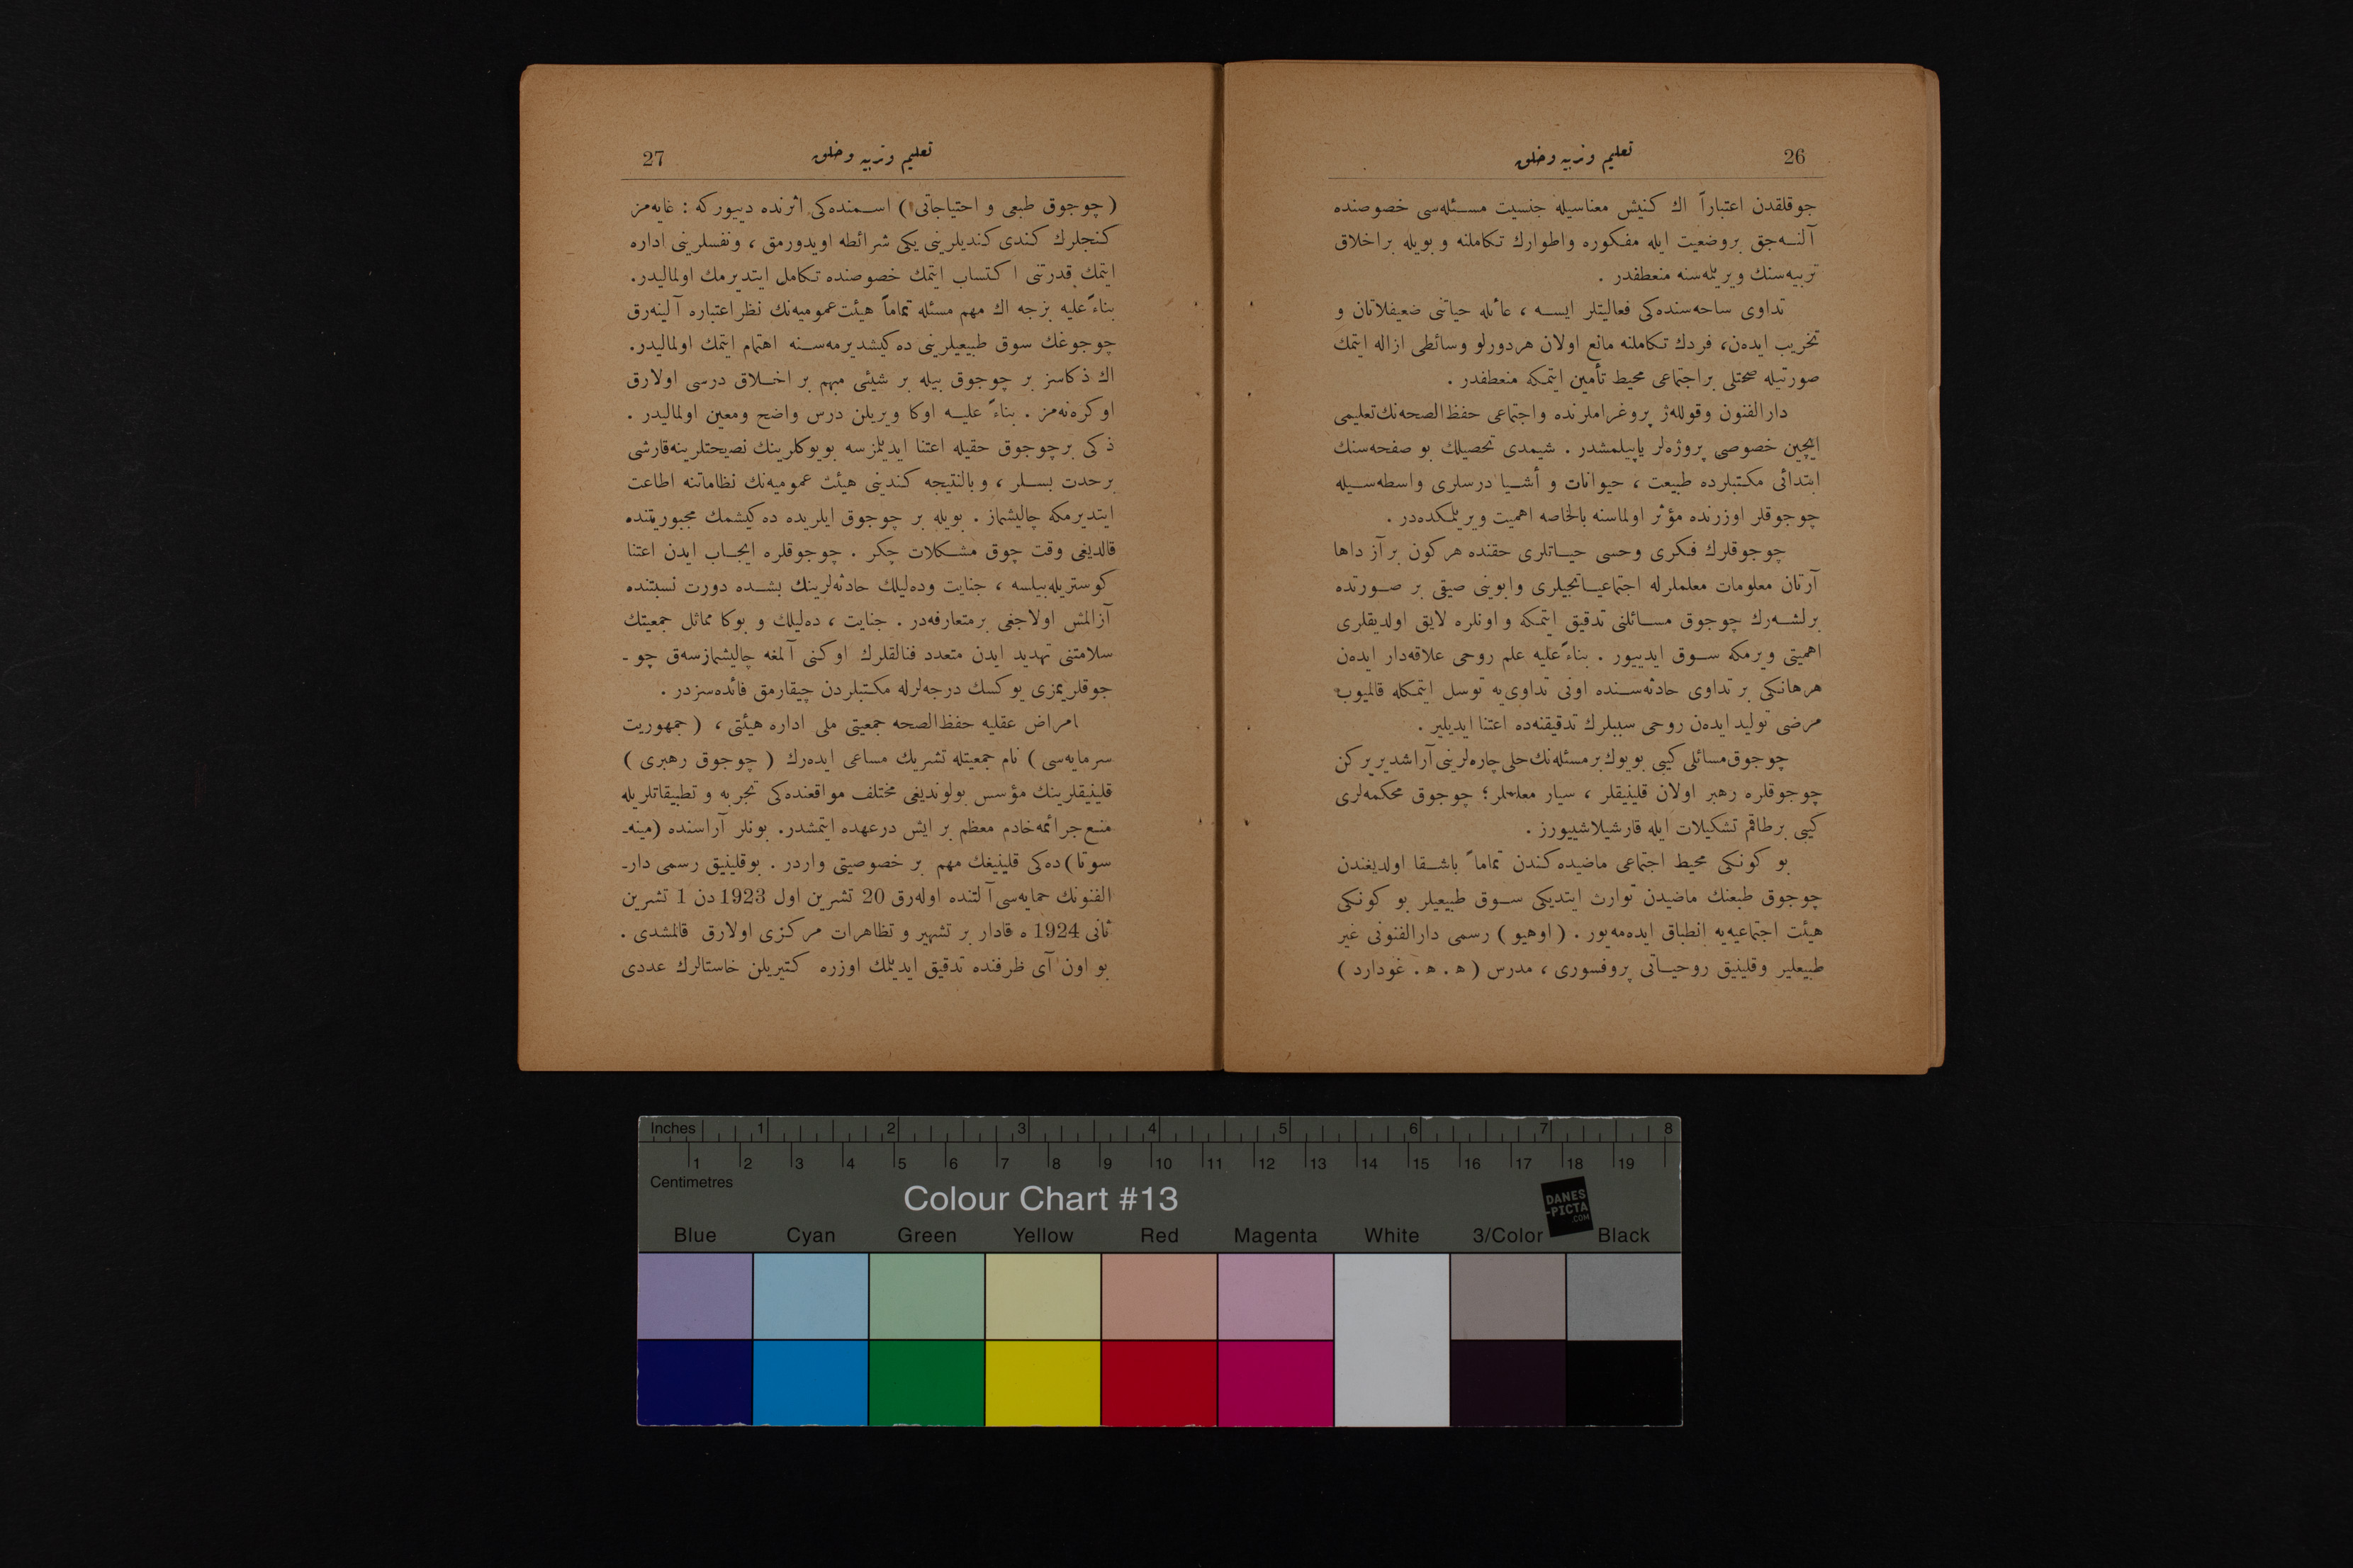 26
تعليم وتربيه وخلق
جوقلقدن اعتباراً اك كنيش معناسيله جنسيت مسئله‌سى خصوصنده
آلنه‌جق بروضعيت ايله مفكوره واطوارك تكاملنه و بويله براخلاق
تربيه‌سنك ويريلمه‌سنه منعطفدر .
تداوى ساحه‌سنده‌كى فعاليتلر ايسه ، عائله حياتنى ضعيفلاتان و
تخريب ايده‌ن، فردك تكاملنه مانع اولان هردورلو وسائطى ازاله ايتمك
صورتيله صحتلى براجتماعى محيط تأمين ايتمكه منعطفدر .
دارالفنون وقولله‌ژ پروغراملرنده واجتماعى حفظ الصحه‌نك تعليمى
ايچين خصوصى پروژه‌لر ياپيلمشدر . شيمدى تحصيلك بو صفحه‌سنك
ابتدائى مكتبلرده طبيعت ، حيوانات و أشيا درسلرى واسطه‌سيله
چوجوقلر اوزرنده مؤثر اولماسنه بالخاصه اهميت ويريلمكده‌در .
چوجوقلرك فكرى وحسى حياتلرى حقنده هركون برآز داها
آرتان معلومات معلملرله اجتماعياتجيلرى وابوينى صيقى بر صورتده
برلشه‌رك چوجوق مسائلنى تدقيق ايتمكه و اونلره لايق اولديقلرى
اهميتى ويرمكه سوق ايدييور . بناءً عليه علم روحى علاقه‌دار ايده‌ن
هرهانكى بر تداوى حادثه‌سنده اونى تداوى‌يه توسل ايتمكله قالميوب
مرضى توليد ايده‌ن روحى سببلرك تدقيقنه‌ده اعتنا ايديلير .
چوجوق مسائلى كيبى بويوك برمسئله‌نك حلى چاره‌لرينى آراشديريركن
چوجوقلره رهبر اولان قلينيقلر ، سيار معلملر؛ چوجوق محكمه‌لرى
كيبى برطاقم تشكيلات ايله قارشيلاشييورز .
بو كونكى محيط اجتماعى ماضيده‌كندن تماماً باشقا اولديغندن
چوجوق طبعنك ماضيدن توارث ايتديكى سوق طبيعيلر بو كونكى
هيئت اجتماعيه‌يه انطباق ايده‌مه‌يور . ( اوهيو ) رسمى دارالفنونى غير
طبيعلير وقلينيق روحياتى پروفسورى ، مدرس ( ه . ه . غودارد )
27
تعليم وتربيه وخلق
( چوجوق طبعى و احتياجاتى ) اسمنده‌كى اثرنده دييوركه : غايه‌مز
كنجلرك كندى كنديلرينى يكى شرائطه اويدورمق ، ونفسلرينى اداره
ايتمك قدرتنى اكتساب ايتمك خصوصنده تكامل ايتديرمك اولماليدر.
بناءً عليه بزجه اك مهم مسئله تماماً هيئت عموميه‌نك نظر اعتباره آلينه‌رق
چوجوغك سوق طبيعيلرينى ده‌كيشديرمه‌سنه اهتمام ايتمك اولماليدر.
اك ذكاسز بر چوجوق بيله بر شيئى مبهم بر اخلاق درسى اولارق
اوكره‌نه‌مز . بناءً عليه اوكا ويريلن درس واضح ومعين اولماليدر .
ذكى برچوجوق حقيله اعتنا ايديلمزسه بويوكلرينك نصيحتلرينه قارشى
برحدت بسلر ، وبالنتيجه كندينى هيئت عموميه‌نك نظاماتنه اطاعت
ايتديرمكه چاليشماز . بويله بر چوجوق ايلريده ده‌كيشمك مجبوريتنده
قالديغى وقت چوق مشكلات چكر . چوجوقلره ايجاب ايدن اعتنا
كوستريله‌بيلسه ، جنايت وده‌ليلك حادثه‌لرينك بشده دورت نسبتنده
آزالمش اولاجغى برمتعارفه‌در . جنايت ، ده‌ليلك و بوكا مماثل جمعيتك
سلامتنى تهديد ايدن متعدد فنالقلرك اوكنى آلمغه چاليشمازسه‌ق چو ـ
جوقلريمزى يوكسك درجه‌لرله مكتبلردن چيقارمق فائده‌سزدر .
امراض عقليه حفظ الصحه جمعيتى ملى اداره هيئتى ، ( جمهوريت
سرمايه‌سى ) نام جمعيتله تشريك مساعى ايده‌رك ( چوجوق رهبرى )
قلينيقلرينك مؤسس بولونديغى مختلف مواقعنده‌كى تجربه و تطبيقاتلريله
منع جرائمه خادم معظم بر ايش درعهده ايتمشدر. بونلر آراسنده (مينه‌ـ
سوتا) ده‌كى قلينيغك مهم بر خصوصيتى واردر . بوقلينيق رسمى دارـ
الفنونك حمايه‌سى آلتنده اوله‌رق 20 تشرين اول 1923 دن 1 تشرين
ثانى 1924 ه قادار بر تشهير و تظاهرات مركزى اولارق قالمشدى .
بو اون آى ظرفنده تدقيق ايديلمك اوزره كتيريلن خاستالرك عددى
Inches 1 2 3 4 5 6 7 8
1 2 3 4 5 6 7 8 9 10 11 12 13 14 15 16 17 18 19
Centimetres
Colour Chart #13
DANES
-PICTA
.COM
Blue Cyan Green Yellow Red Magenta White 3/Color Black